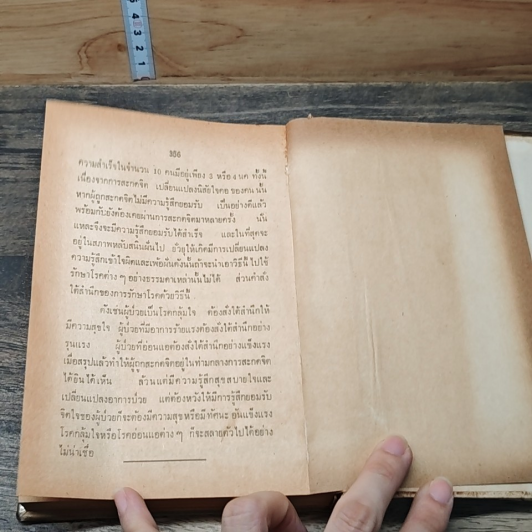 356
ความสำเร็จในจำนวน 10 คนมีอยู่เพียง 3 หรือ 4 นค ทั้งนี้
เนื่องจากการสะกดจิต เปลี่ยนแปลงนิสัยใจคอ ของ คน นั้น
หากผู้ถูกสะกดจิตไม่มีความรู้สึกยอมรับ เป็นอย่างดีแล้ว
พร้อมกับยังต้องเคยผ่านการสะกดจิตมาหลายครั้ง นั่น
แหละจึงจะมีความรู้สึกยอมรับได้สำเร็จ และในที่สุดจะ
อยู่ในสภาพหลับสนิทผืนไป ยั่วยุให้เกิดมีการเปลี่ยนแปลง
ความรู้สึกเข้าใจผิดและเพ้อฝันดังนั้นถ้าจะนำเอาวิธีนี้ ไป ใช้
รักษาโรคต่าง ๆ อย่างธรรมดาเหล่านั้นไม่ได้ ส่วนคำสั่ง
ใต้สำนึกของการรักษาโรคด้วยวิธีนี้
ดังเช่นผู้ป่วยเป็นโรคกลุ้มใจ ต้องสั่งใต้สำนึกให้
มีความสุขใจ ผู้ป่วยที่มีอาการร้ายแรงต้องสั่งใต้สำนึกอย่าง
รุนแรง ผู้ป่วยที่อ่อนแอต้องสั่งใต้สำนึกอย่างแข็งแรง
เมื่อสรุปแล้วทำให้ผู้ถูกสะกดจิตอยู่ในท่ามกลางการสะกดจิต
ได้ยิน ได้เห็น ล้วนแต่มีความรู้สึกสุขสบายใจและ
เปลี่ยนแปลงอาการป่วย แต่ต้องหวังให้มีการรู้สึกยอมรับ
จิตใจของผู้ป่วยก็จะต้องมีความสุขหรือมีทัศนะ อันแข็งแรง
โรคกลุ้มใจหรือโรคอ่อนแอต่าง ๆ ก็จะสลายตัวไปได้อย่าง
ไม่น่าเชื่อ
5 4 3 2 1